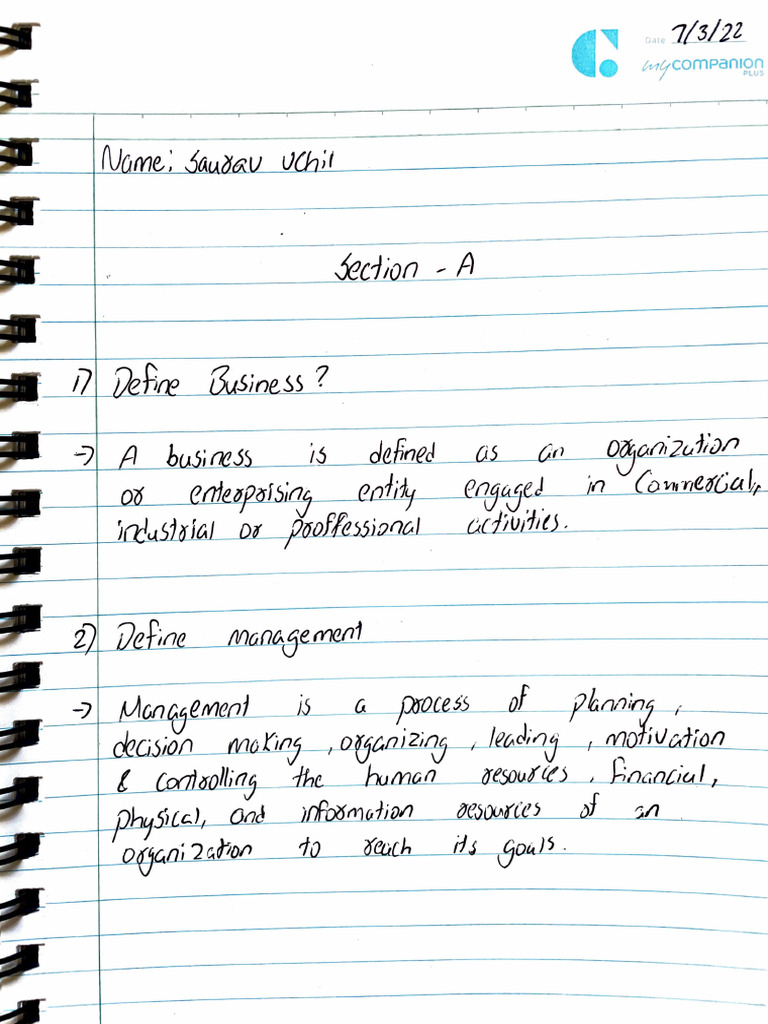 Date 7/3/22
mycompanion
PLUS
Name: Saurav Uchil
Section - A
1) Define Business?
→ A business is defined as an organization
or enterprising entity engaged in Commercial,
industrial or proffessional activities.
2) Define management
→ Management is a process of planning,
decision making, organizing, leading, motivation
& controlling the human resources, financial,
physical, and information resources of an
organization to reach its goals.